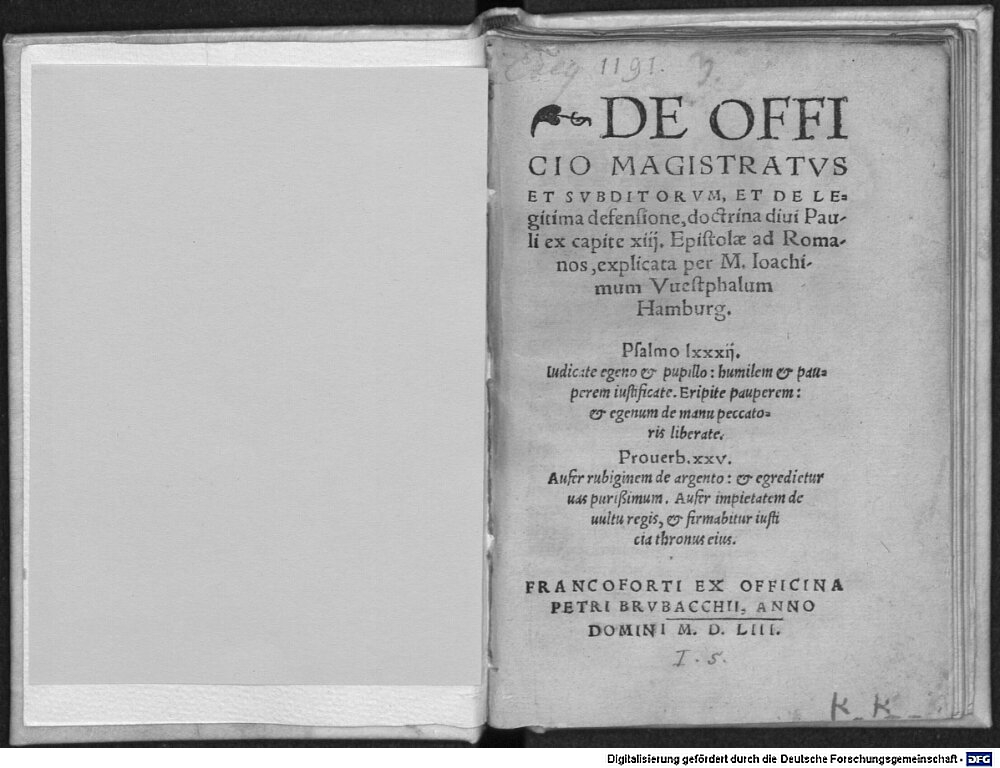 1191.
DE OFFI
CIO MAGISTRATVS
ET SVBDITORVM, ET DE LE⸗
gitima defenſione, doctrina diui Pau⸗
li ex capite xiij. Epiſtolæ ad Roma⸗
nos, explicata per M. Ioachi⸗
mum Vueſtphalum
Hamburg.
Pſalmo lxxxij.
Iudicate egeno & pupillo: humilem & pau⸗
perem iuſtificate. Eripite pauperem:
& egenum de manu peccato⸗
ris liberate.
Prouerb. xxv.
Aufer rubiginem de argento: & egredietur
uas purißimum. Aufer impietatem de
uultu regis, & firmabitur iuſti
cia thronus eius.
FRANCOFORTI EX OFFICINA
PETRI BRVBACCHII, ANNO
DOMINI M. D. LIII.
I. 5.
K. K.
Digitalisierung gefördert durch die Deutsche Forschungsgemeinschaft - DFG